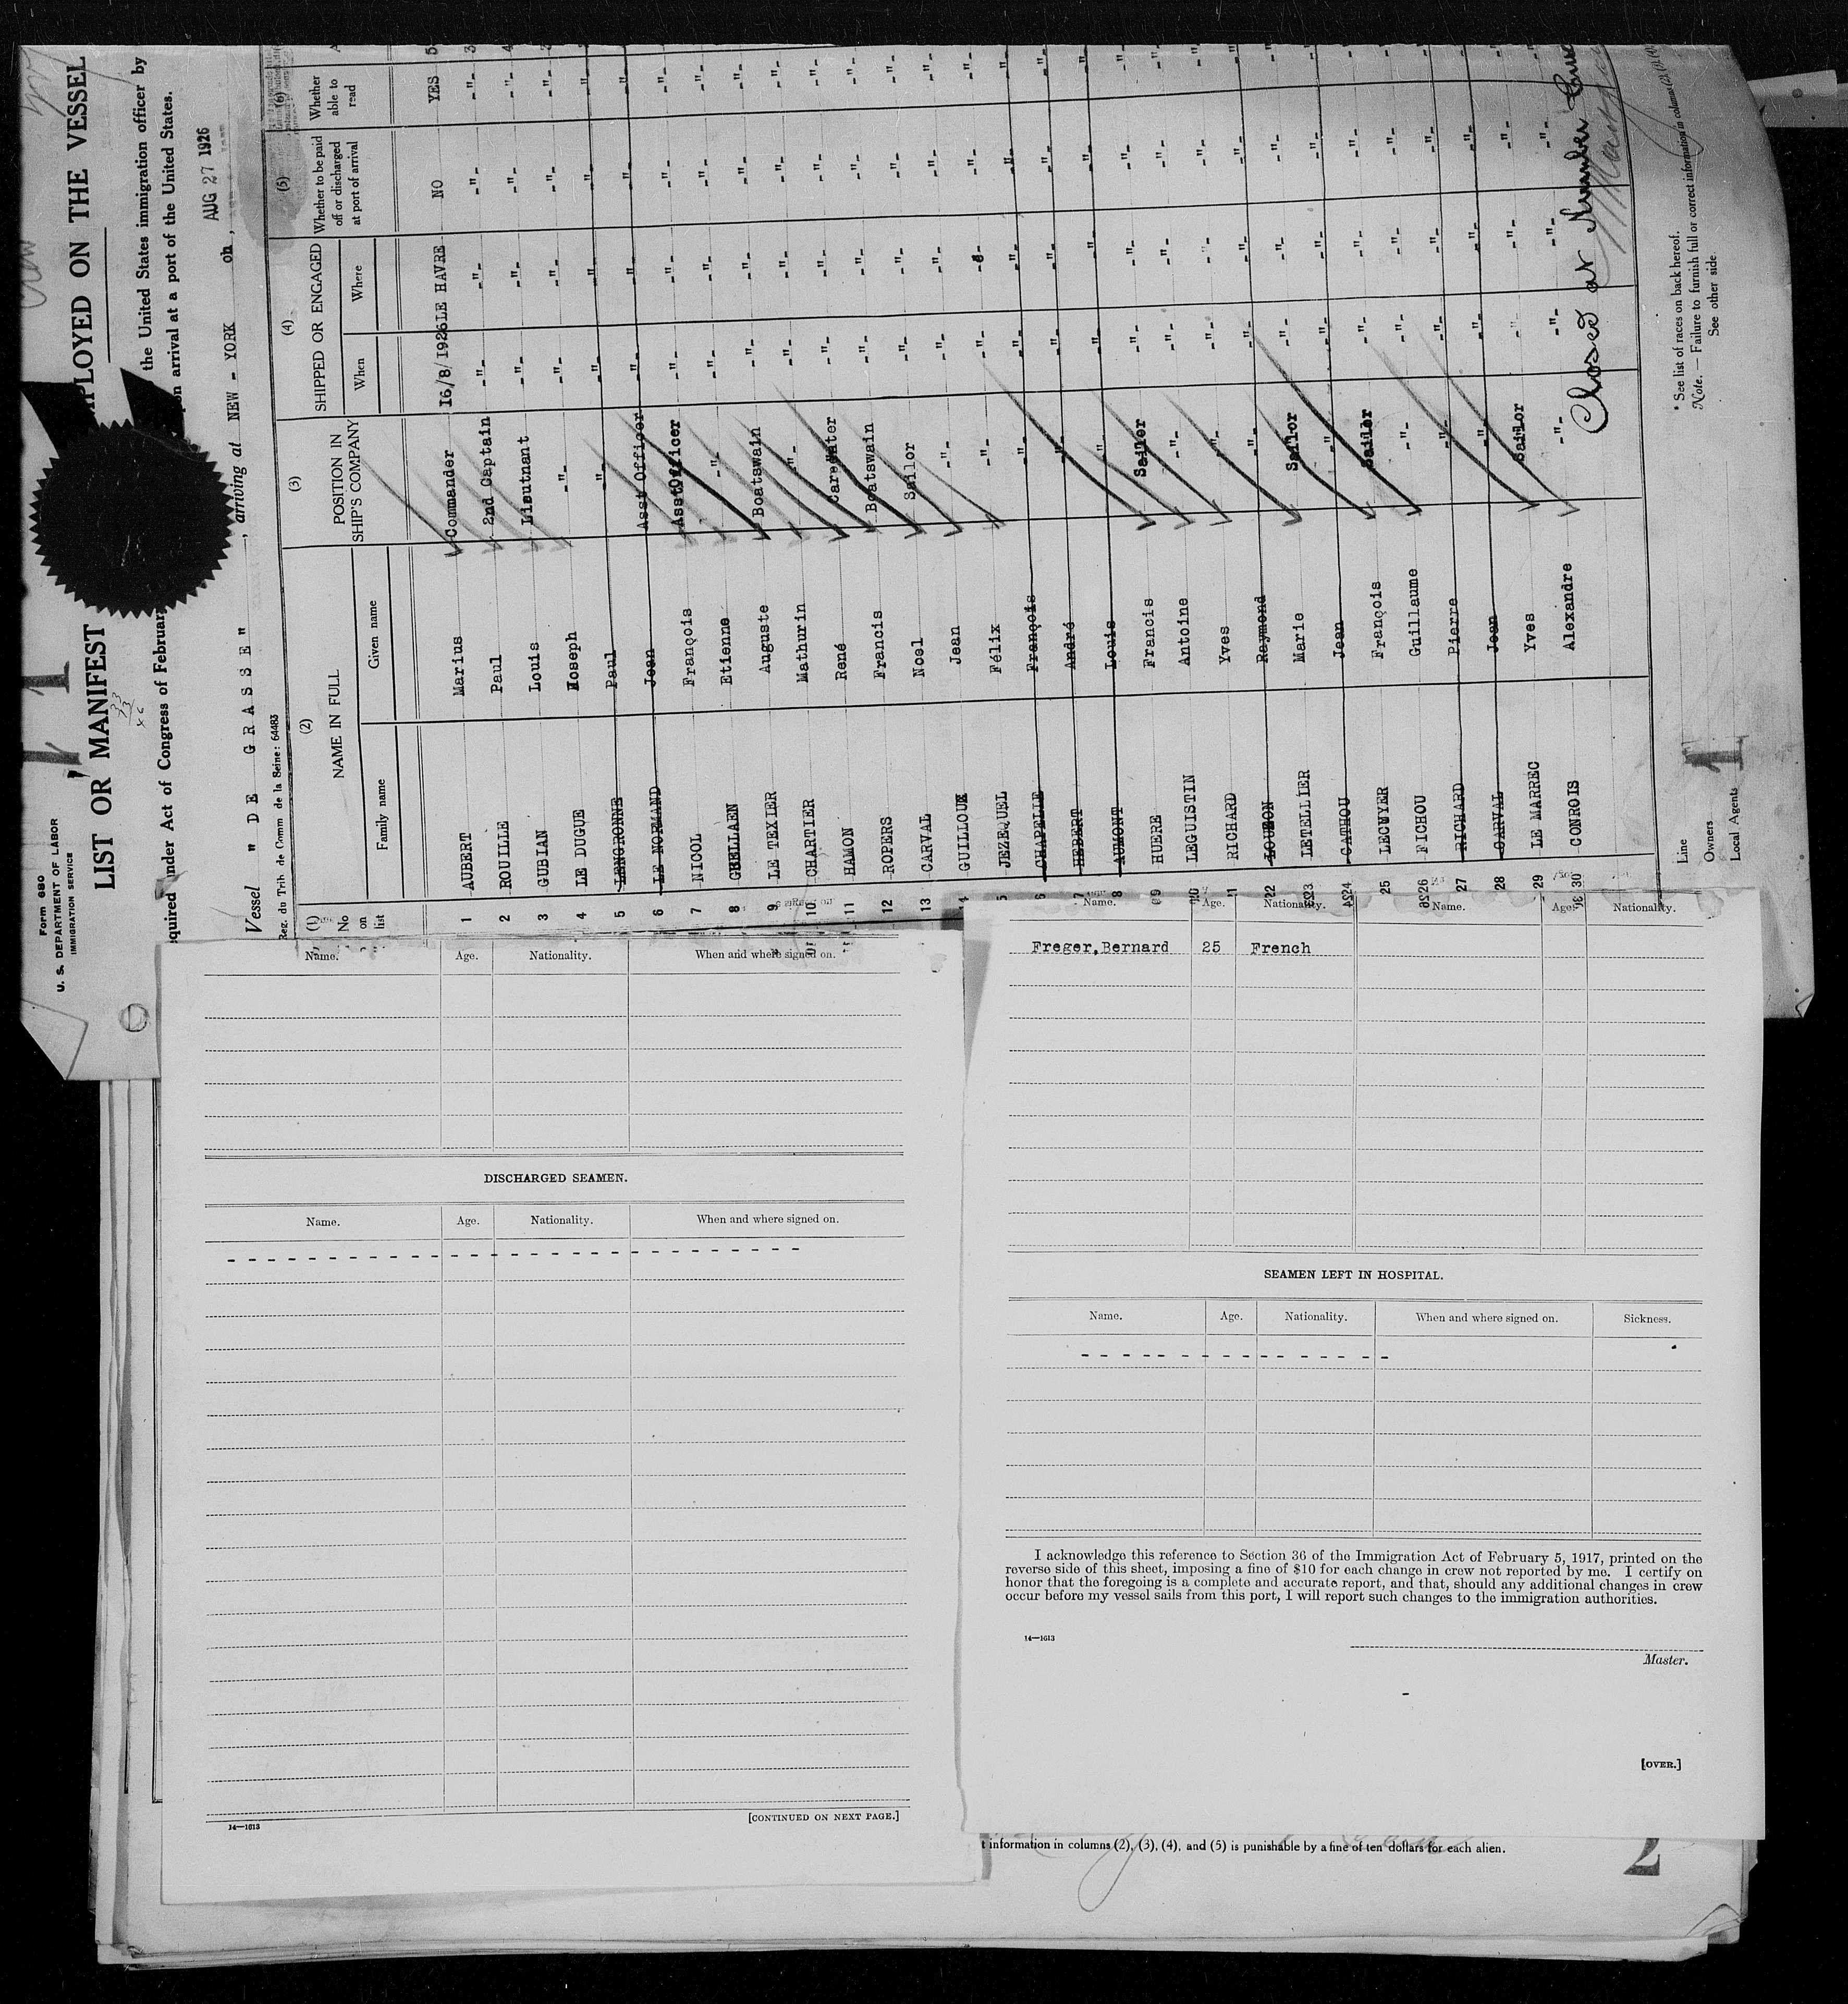 Form 680
U. S. DEPARTMENT OF LABOR
IMMIGRATION SERVICE
LIST OR MANIFEST
PLOYED ON THE VESSEL
equired under Act of Congress of Februar
the United States immigration officer by
on arrival at a port of the United States.
Vessel " D E G R A S S E " , arriving at NEW - YORK on, AUG 27 1926
Reg. du Trib. de Comm de la Seine: 64483
(1) (2) (3) (4) (5) (6)
No on list
NAME IN FULL
Family name Given name
POSITION IN SHIP'S COMPANY
SHIPPED OR ENGAGED
When Where
Whether to be paid off or discharged at port of arrival
Whether able to read
1 AUBERT Marius Commander 16/8/1926 LE HAVRE NO YES
2 ROUILLE Paul 2nd Captain -"- -"- -"- -"-
3 GUBIAN Louis Lieutnant -"- -"- -"- -"-
4 LE DUGUE Hoseph -"- -"- -"- -"- -"-
5 LENGRONNE Paul -"- -"- -"- -"- -"-
6 LE NORMAND Jean Asst Officer -"- -"- -"- -"-
7 NICOL François Asst Officer -"- -"- -"- -"-
8 GUELLAEN Etienne -"- -"- -"- -"- -"-
9 LE TEXIER Auguste Boatswain -"- -"- -"- -"-
10 CHARTIER Mathurin -"- -"- -"- -"- -"-
11 HAMON René -"- -"- -"- -"-
12 ROPERS Francis Boatswain -"- -"- -"- -"-
13 CARVAL Noel Sailor -"- -"- -"- -"-
14 GUILLOUX Jean -"- -"- -"- -"- -"-
5 JEZEQUEL Félix -"- -"- -"- -"- -"-
6 CHAPELLE François -"- -"- -"- -"- -"-
7 HEBERT André -"- -"- -"- -"-
8 AUMONT Louis -"- -"- -"- -"- -"-
9 HUERE Francis Sailor -"- -"- -"- -"-
10 LEGUISTIN Antoine -"- -"- -"- -"- -"-
11 RICHARD Yves -"- -"- -"- -"- -"-
22 LOUZON Raymond -"- -"- -"- -"- -"-
23 LETELLIER Marie Sailor -"- -"- -"- -"-
24 CATHOU Jean -"- -"- -"- -"- -"-
25 LECUYER François Sailor -"- -"- -"- -"-
26 FICHOU Guillaume -"- -"- -"- -"- -"-
27 RICHARD Pierre -"- -"- -"- -"- -"-
28 CARVAL Jean -"- -"- -"- -"- -"-
29 LE MARREC Yves Sailor -"- -"- -"- -"-
30 CONROIS Alexandre -"- -"- -"- -"-
Closed at Number
Line
Owners
Local Agents
1
* See list of races on back hereof.
Note. — Failure to furnish full or correct information in columns (2), (3), (4),
See other side.
Name. Age. Nationality. When and where signed on.
DISCHARGED SEAMEN.
Name. Age. Nationality. When and where signed on.
- - - - - - - - - - - - - - - - - - - - - - - - - -
14—1613
[CONTINUED ON NEXT PAGE.]
Name. Age. Nationality. Name. Age. Nationality.
Freger,Bernard 25 French
SEAMEN LEFT IN HOSPITAL.
Name. Age. Nationality. When and where signed on. Sickness.
- - - - - - - - - - - - - - - -
I acknowledge this reference to Section 36 of the Immigration Act of February 5, 1917, printed on the
reverse side of this sheet, imposing a fine of $10 for each change in crew not reported by me. I certify on
honor that the foregoing is a complete and accurate report, and that, should any additional changes in crew
occur before my vessel sails from this port, I will report such changes to the immigration authorities.
14—1613
Master.
[OVER.]
t information in columns (2), (3), (4), and (5) is punishable by a fine of ten dollars for each alien.
2